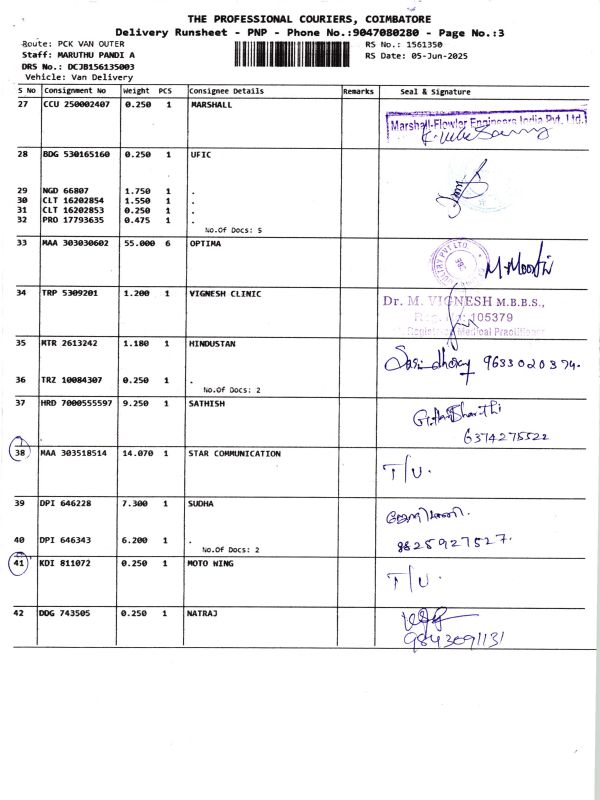 THE PROFESSIONAL COURIERS, COIMBATORE
Delivery Runsheet - PNP - Phone No.:9047080280 - Page No.:3
Route: PCK VAN OUTER
RS No.: 1561350
Staff: MARUTHU PANDI A
RS Date: 05-Jun-2025
DRS No.: DCJB156135003
Vehicle: Van Delivery
S No Consignment No Weight PCS Consignee Details Remarks Seal & Signature
27 CCU 250002407 0.250 1 MARSHALL
Marshall-Flowler Engineers India Pvt. Ltd.
28 BDG 530165160 0.250 1 UFIC
29 NGD 66807 1.750 1 .
30 CLT 16202854 1.550 1 .
31 CLT 16202853 0.250 1 .
32 PRO 17793635 0.475 1 .
No.Of Docs: 5
33 MAA 303030602 55.000 6 OPTIMA
M. Moorthi
34 TRP 5309201 1.200 1 VIGNESH CLINIC
Dr. M. VIGNESH M.B.B.S.,
105379
Medical Practitioner
35 MTR 2613242 1.180 1 HINDUSTAN
9633020374.
36 TRZ 10084307 0.250 1 .
No.Of Docs: 2
37 HRD 7000555597 9.250 1 SATHISH
6374275522
38 MAA 303518514 14.070 1 STAR COMMUNICATION
T/U.
39 DPI 646228 7.300 1 SUDHA
40 DPI 646343 6.200 1 .
8825927527.
No.Of Docs: 2
41 KDI 811072 0.250 1 MOTO WING
T/U.
42 DDG 743505 0.250 1 NATRAJ
9843091131